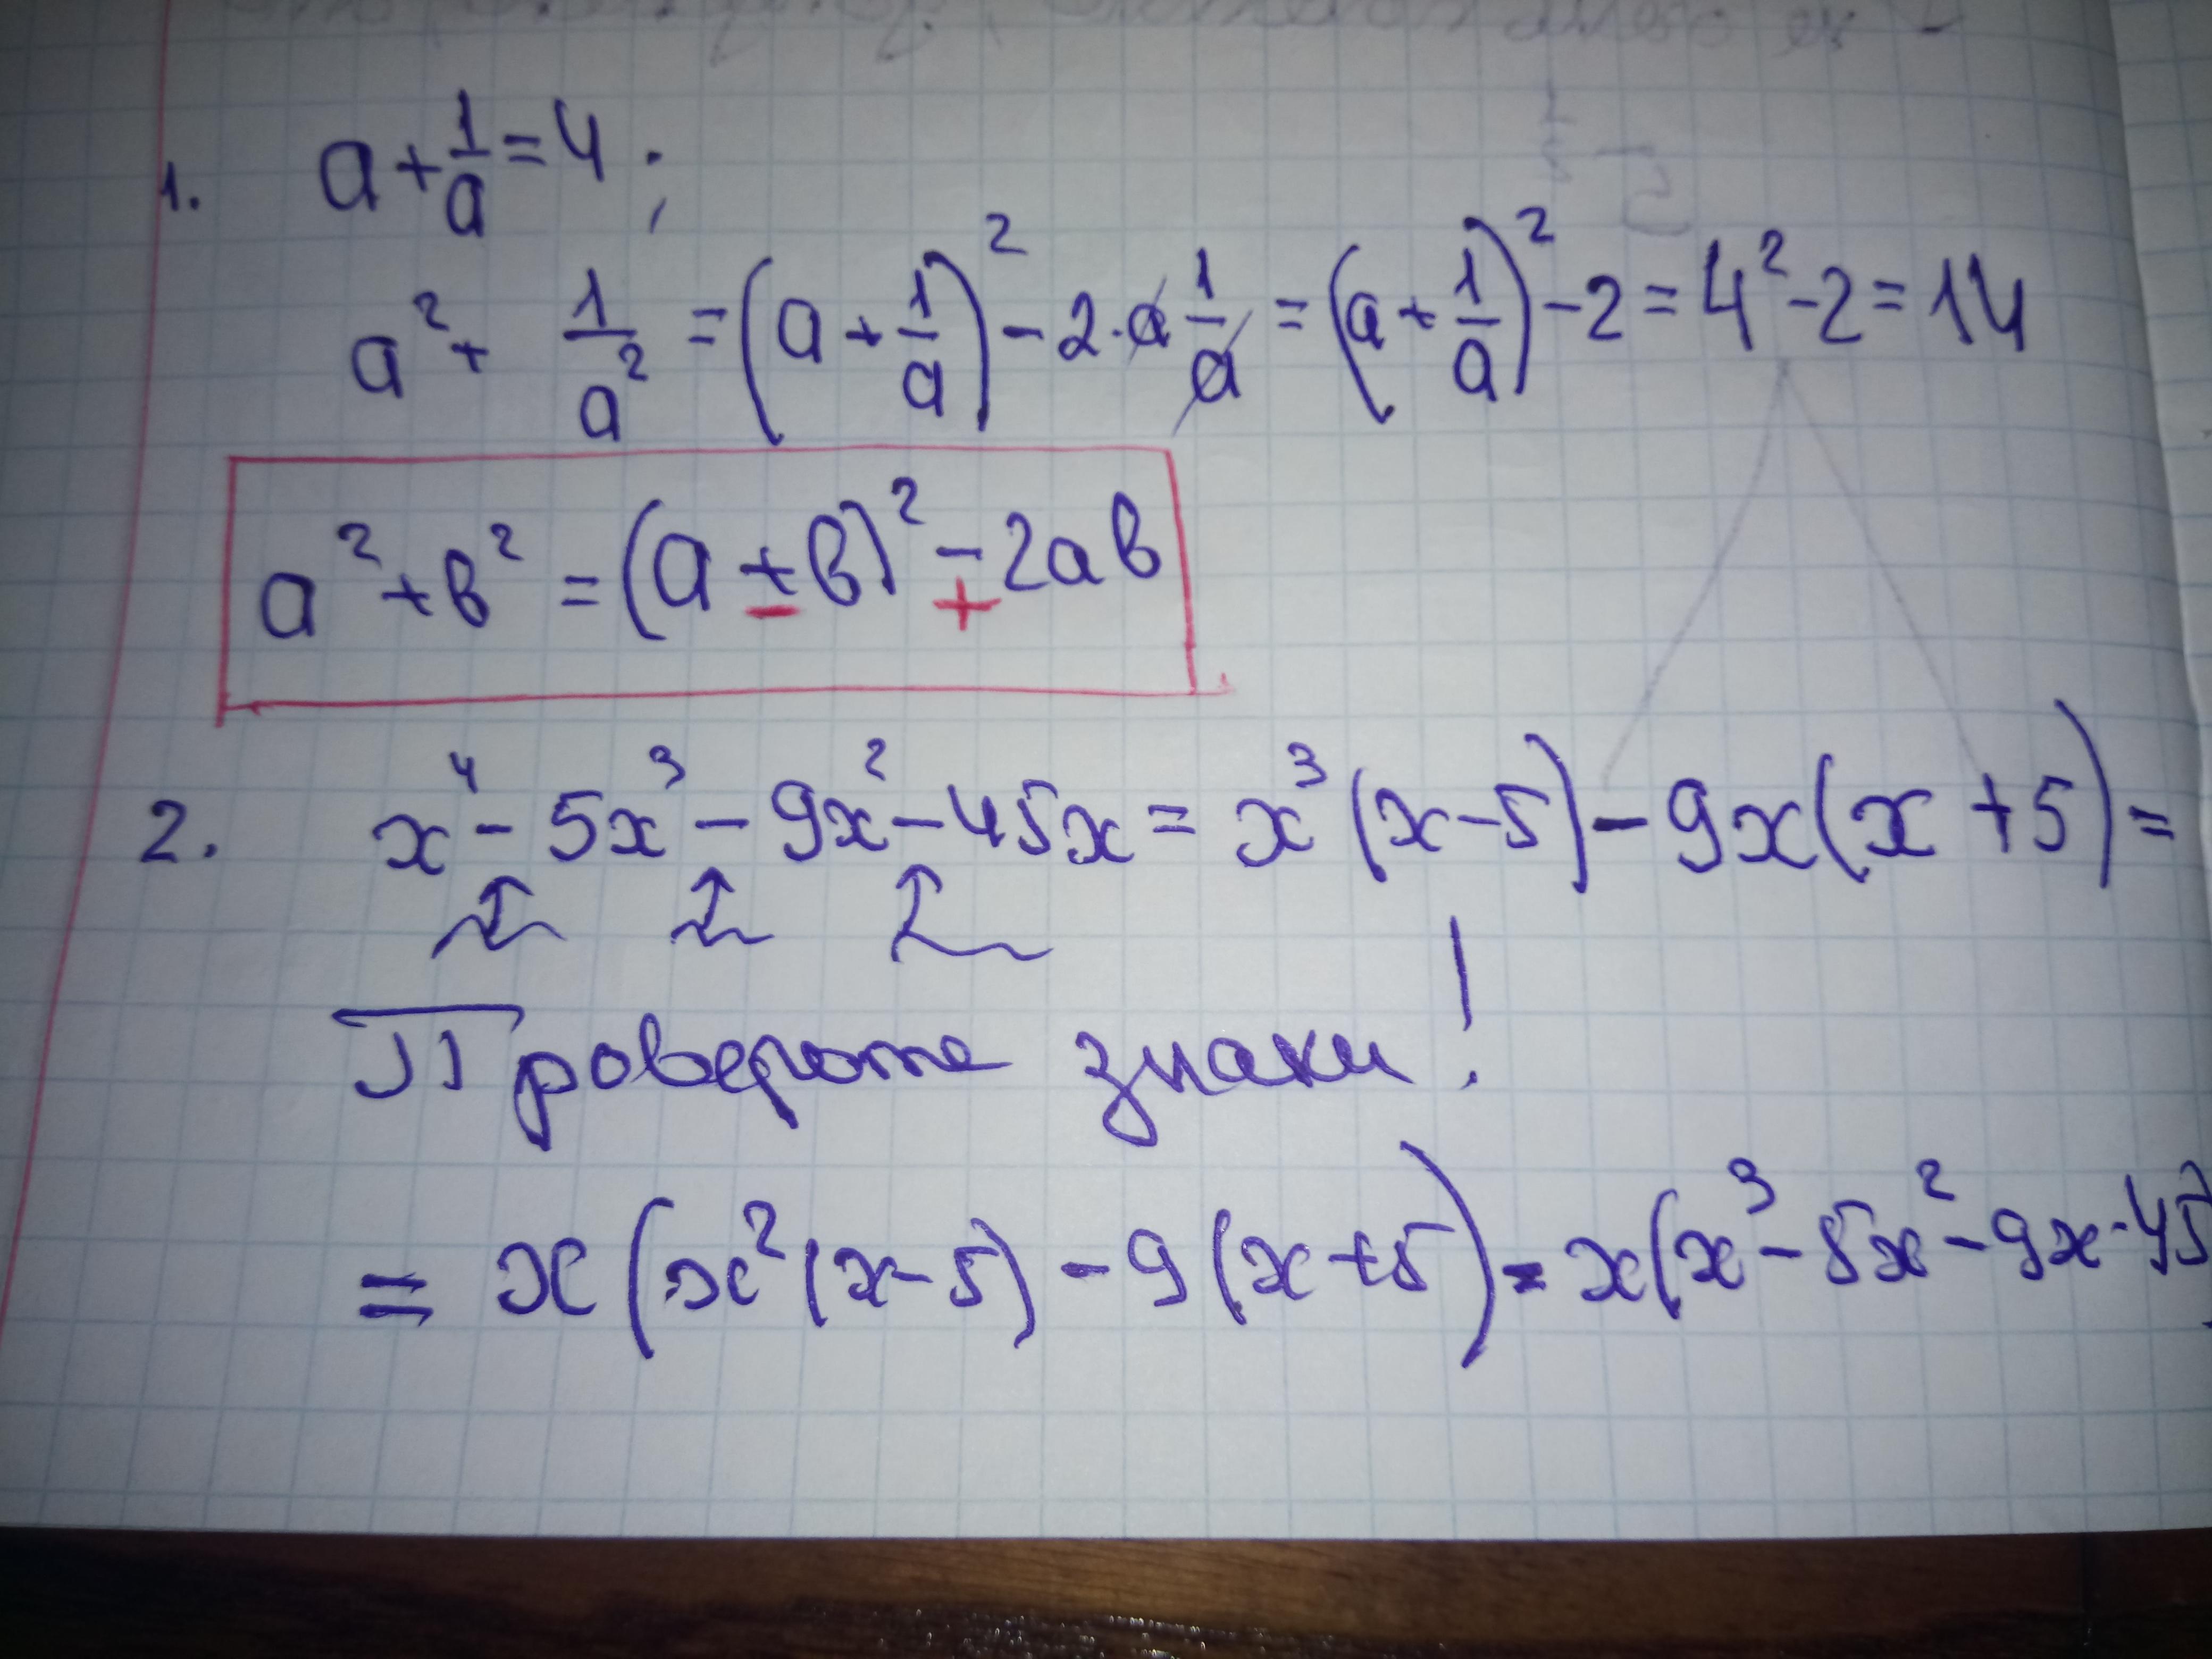 1. a + 1/a = 4;
a² + 1/a² = (a + 1/a)² - 2·a 1/a = (a + 1/a)² - 2 = 4² - 2 = 14
a² + в² = (a ± в)² ∓ 2aв
2. x⁴ - 5x³ - 9x² - 45x = x³(x-5) - 9x(x+5) =
Проверьте знаки!
= x(x²(x-5) - 9(x+5)) = x(x³ - 5x² - 9x - 45)